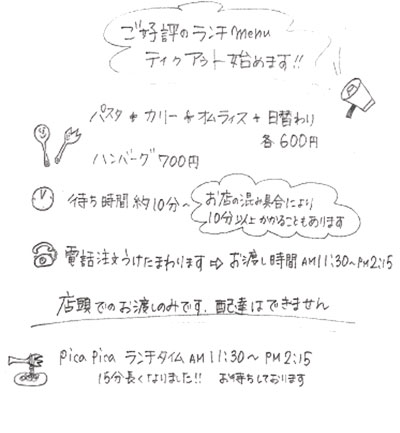 ご好評のランチmenu
テイクアウト始めます!!
パスタ + カリー + オムライス + 日替わり
各600円
ハンバーグ700円
待ち時間約10分~
お店の混み具合により
10分以上かかることもあります
電話注文うけたまわります ⇨ お渡し時間 AM11:30~PM2:15
店頭でのお渡しのみです. 配達はできません
pica pica ランチタイム AM 11:30~ PM 2:15
15分長くなりました!! お待ちしております